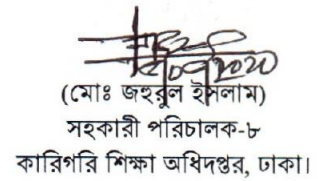 (মোঃ জহুরুল ইসলাম)
সহকারী পরিচালক-৮
কারিগরি শিক্ষা অধিদপ্তর, ঢাকা।